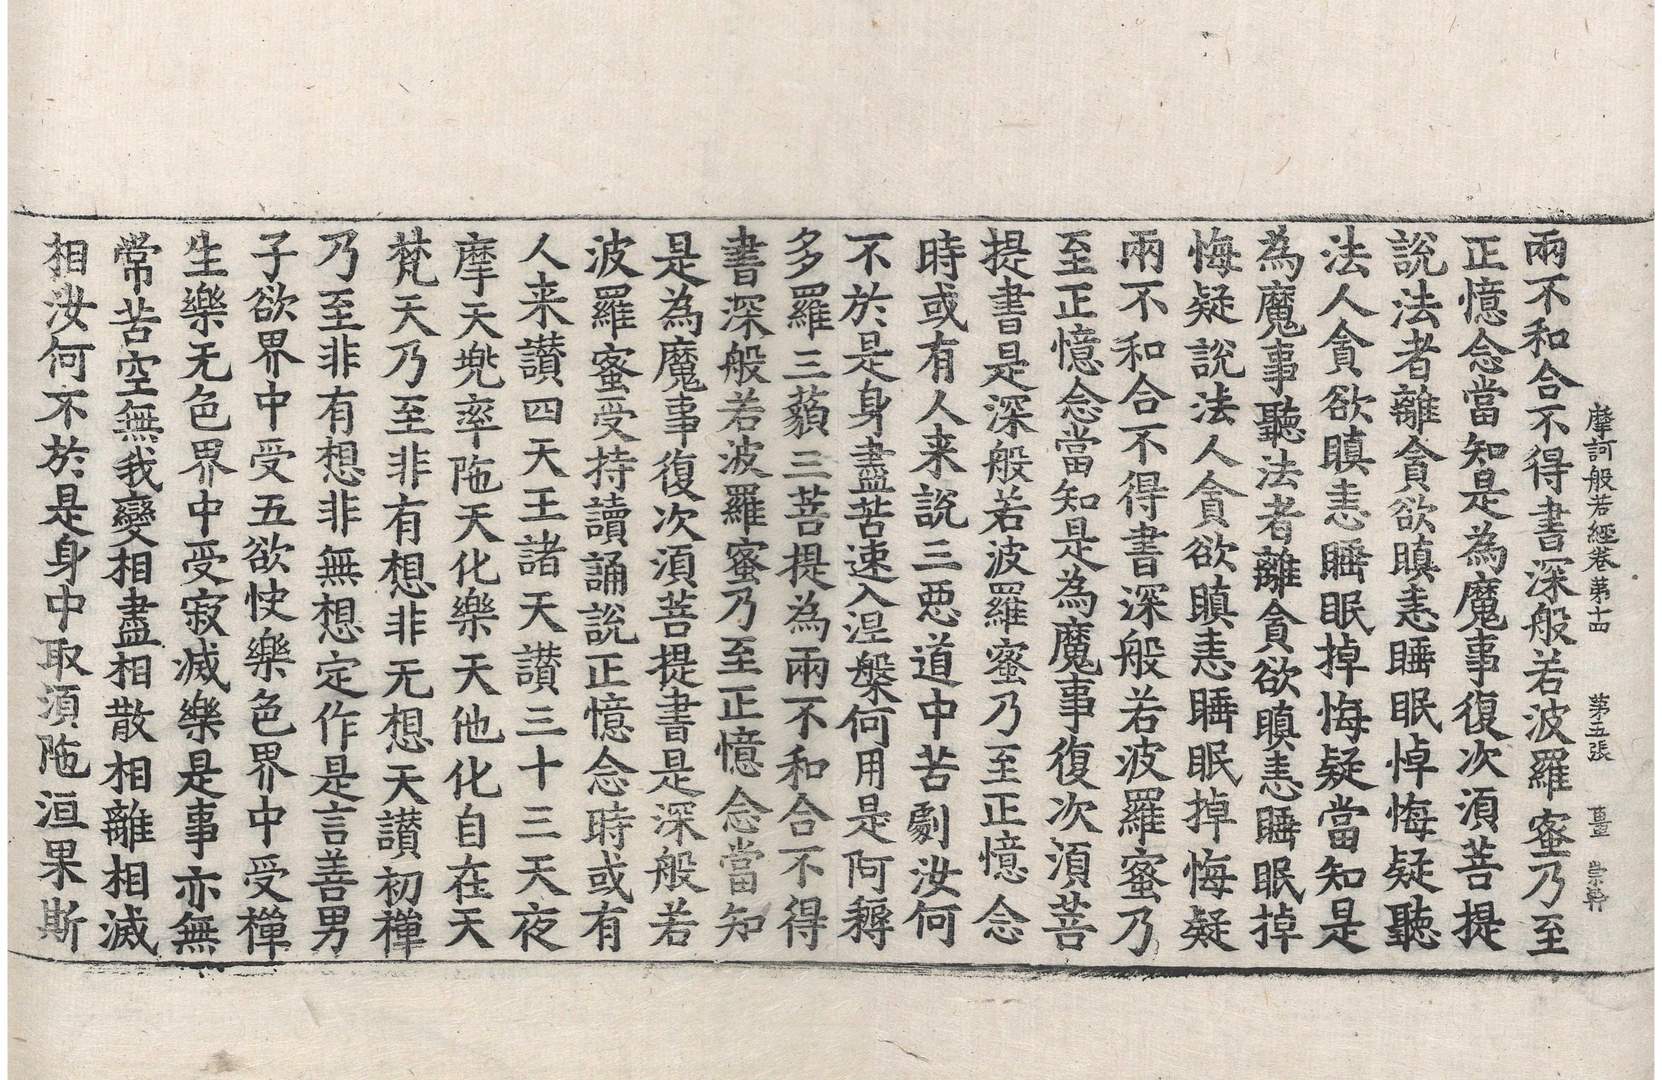 摩訶般若經卷第十四　第五張　薑　崇幹
兩不和合不得書深般若波羅蜜乃至
正憶念當知是為魔事復次須菩提
說法者離貪欲瞋恚睡眠悼悔疑聽
法人貪欲瞋恚睡眠掉悔疑當知是
為魔事聽法者離貪欲瞋恚睡眠掉
悔疑說法人貪欲瞋恚睡眠掉悔疑
兩不和合不得書深般若波羅蜜乃
至正憶念當知是為魔事復次須菩
提書是深般若波羅蜜乃至正憶念
時或有人来說三惡道中苦劇汝何
不於是身盡苦速入涅槃何用是阿耨
多羅三藐三菩提為兩不和合不得
書深般若波羅蜜乃至正憶念當知
是為魔事復次須菩提書是深般若
波羅蜜受持讀誦說正憶念時或有
人来讚四天王諸天讚三十三天夜
摩天兠率陁天化樂天他化自在天
梵天乃至非有想非无想天讚初禪
乃至非有想非無想定作是言善男
子欲界中受五欲快樂色界中受禪
生樂无色界中受寂滅樂是事亦無
常苦空無我變相盡相散相離相滅
相汝何不於是身中取須陁洹果斯